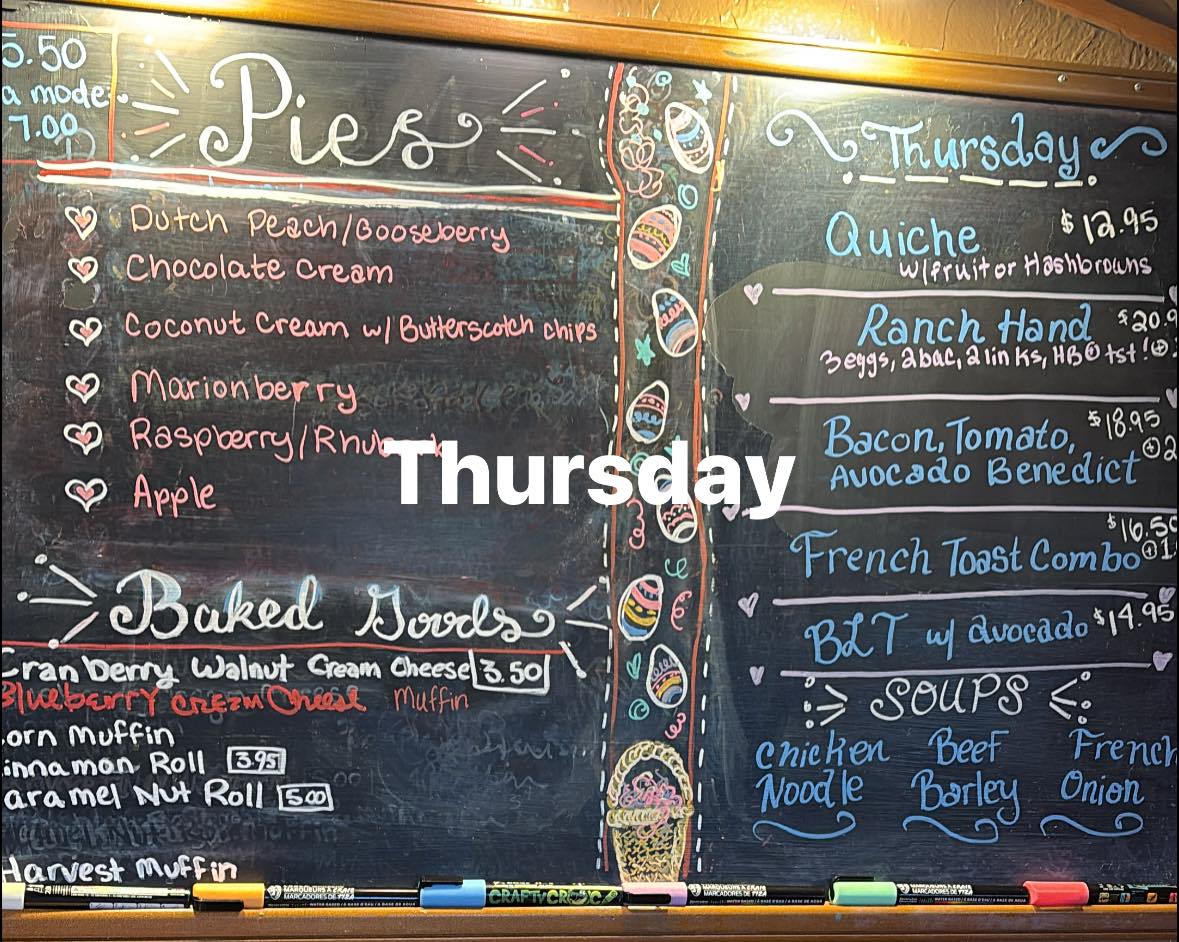 5.50
a mode
7.00
Pies
Dutch Peach/Gooseberry
Chocolate Cream
Coconut Cream w/ Butterscotch chips
Marionberry
Raspberry/
Apple
Baked Goods
Cranberry Walnut Cream Cheese 3.50
Blueberry Cream Cheese Muffin
orn Muffin
innamon Roll 3.95
aramel Nut Roll 5.00
Harvest Muffin
Thursday
Thursday
Quiche $12.95
w/fruit or Hashbrowns
Ranch Hand $20.9
3eggs, 2bac, 2links, HB tst!
Bacon, Tomato, $18.95
Avocado Benedict
$16.50
French Toast Combo
BLT w/ avocado $14.95
SOUPS
Chicken Noodle
Beef Barley
French Onion
MARQUEURS À CRAIE
MARCADORES DE TIZA
CRAFTY CROC
MARQUEURS À CRAIE
MARCADORES DE TIZA
MARQUEURS À CRAIE
MARCADORES DE TIZA